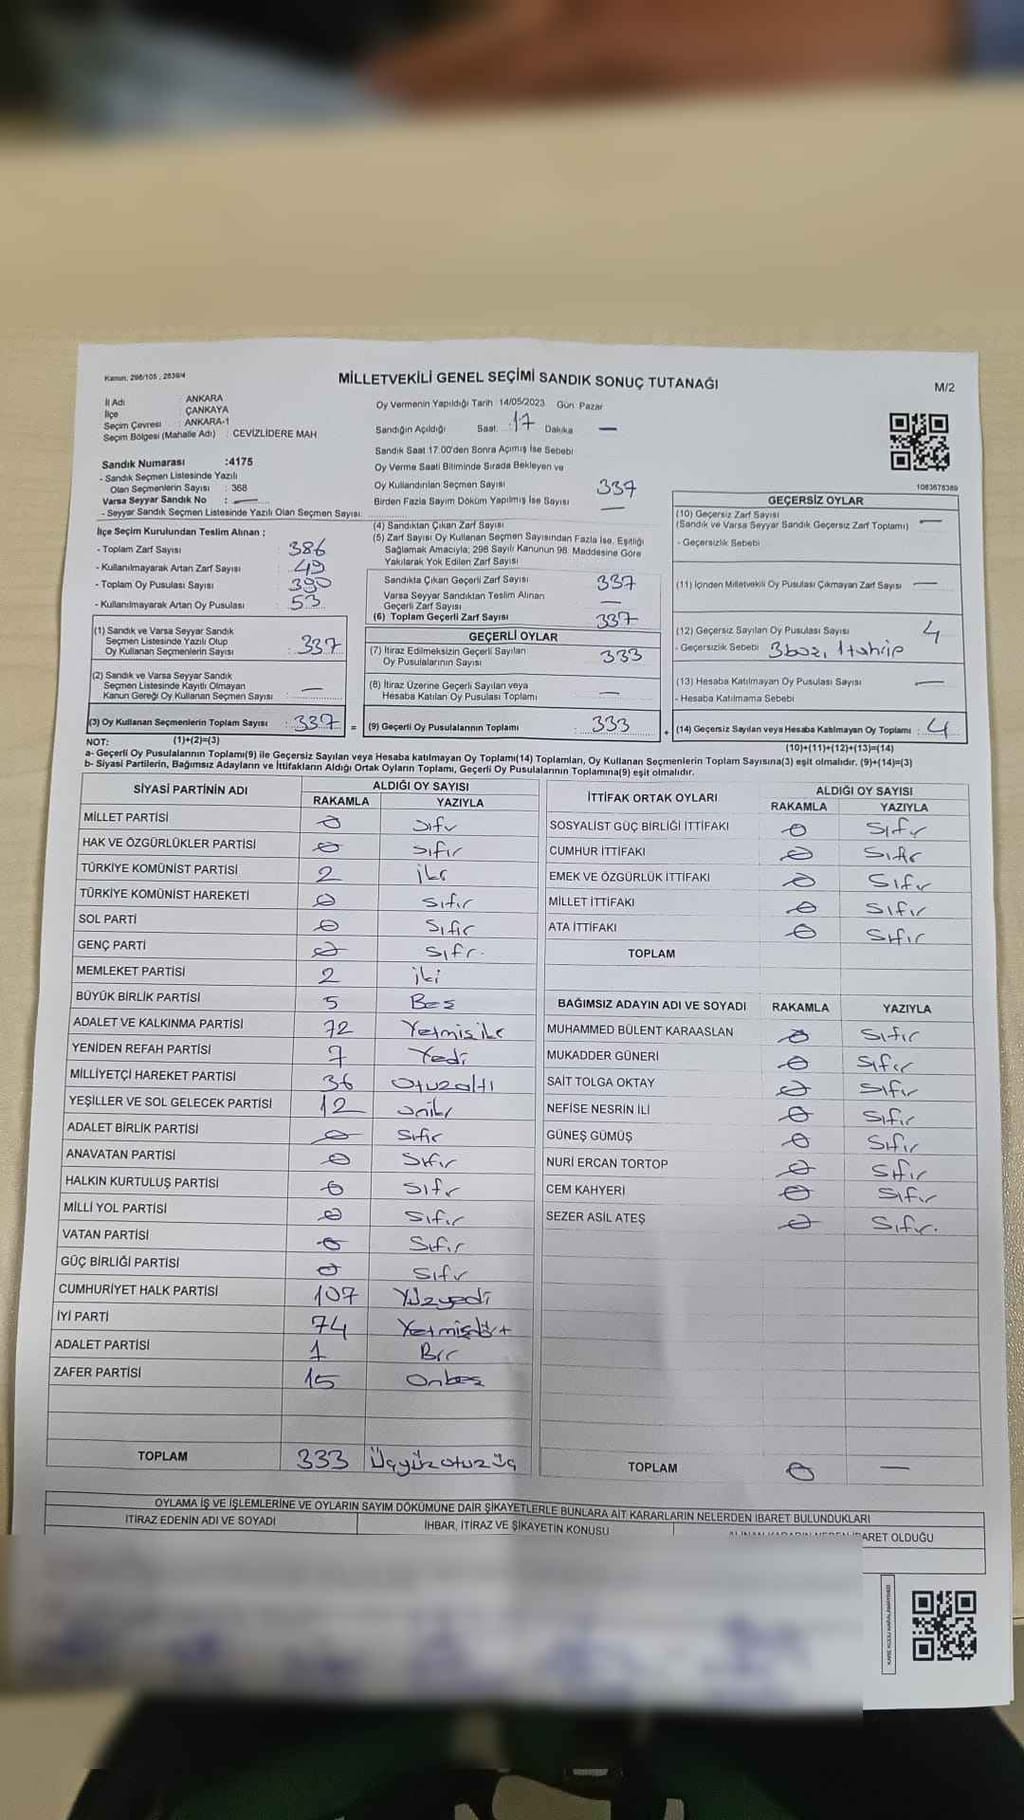 Kanun, 298/105 , 2839/4
MİLLETVEKİLİ GENEL SEÇİMİ SANDIK SONUÇ TUTANAĞI
M/2
İl Adı ANKARA
İlçe ÇANKAYA
Seçim Çevresi : ANKARA-1
Seçim Bölgesi (Mahalle Adı) : CEVİZLİDERE MAH
Sandık Numarası :4175
- Sandık Seçmen Listesinde Yazılı
Olan Seçmenlerin Sayısı : 368
Varsa Seyyar Sandık No : —
- Seyyar Sandık Seçmen Listesinde Yazılı Olan Seçmen Sayısı:
Oy Vermenin Yapıldığı Tarih 14/05/2023 Gün Pazar
Sandığın Açıldığı Saat: 17 Dakika —
Sandık Saat 17.00'den Sonra Açımış İse Sebebi
Oy Verme Saati Bitiminde Sırada Bekleyen ve
Oy Kullandırılan Seçmen Sayısı 337
Birden Fazla Sayım Döküm Yapılmış İse Sayısı —
1083678389
İlçe Seçim Kurulundan Teslim Alınan :
- Toplam Zarf Sayısı : 386
- Kullanılmayarak Artan Zarf Sayısı : 49
- Toplam Oy Pusulası Sayısı : 390
- Kullanılmayarak Artan Oy Pusulası : 53
(1) Sandık ve Varsa Seyyar Sandık
Seçmen Listesinde Yazılı Olup
Oy Kullanan Seçmenlerin Sayısı : 337
(2) Sandık ve Varsa Seyyar Sandık
Seçmen Listesinde Kayıtlı Olmayan
Kanun Gereği Oy Kullanan Seçmen Sayısı : —
(3) Oy Kullanan Seçmenlerin Toplam Sayısı : 337 =
(1)+(2)=(3)
(4) Sandıktan Çıkan Zarf Sayısı
(5) Zarf Sayısı Oy Kullanan Seçmen Sayısından Fazla İse, Eşitliği
Sağlamak Amacıyla; 298 Sayılı Kanunun 98. Maddesine Göre
Yakılarak Yok Edilen Zarf Sayısı
Sandıkta Çıkan Geçerli Zarf Sayısı 337
Varsa Seyyar Sandıktan Teslim Alınan
Geçerli Zarf Sayısı —
(6) Toplam Geçerli Zarf Sayısı 337
GEÇERLİ OYLAR
(7) İtiraz Edilmeksizin Geçerli Sayılan
Oy Pusulalarının Sayısı 333
(8) İtiraz Üzerine Geçerli Sayılan veya
Hesaba Katılan Oy Pusulası Toplamı —
(9) Geçerli Oy Pusulalarının Toplamı : 333 +
GEÇERSİZ OYLAR
(10) Geçersiz Zarf Sayısı
(Sandık ve Varsa Seyyar Sandık Geçersiz Zarf Toplamı) —
- Geçersizlik Sebebi
(11) İçinden Milletvekili Oy Pusulası Çıkmayan Zarf Sayısı —
(12) Geçersiz Sayılan Oy Pusulası Sayısı 4
- Geçersizlik Sebebi 3 boş, 1 tahrip
(13) Hesaba Katılmayan Oy Pusulası Sayısı —
- Hesaba Katılmama Sebebi
(14) Geçersiz Sayılan veya Hesaba Katılmayan Oy Toplamı : 4
(10)+(11)+(12)+(13)=(14)
NOT:
a- Geçerli Oy Pusulalarının Toplamı(9) ile Geçersiz Sayılan veya Hesaba katılmayan Oy Toplamı(14) Toplamları, Oy Kullanan Seçmenlerin Toplam Sayısına(3) eşit olmalıdır. (9)+(14)=(3)
b- Siyasi Partilerin, Bağımsız Adayların ve İttifakların Aldığı Ortak Oyların Toplamı, Geçerli Oy Pusulalarının Toplamına(9) eşit olmalıdır.
SİYASİ PARTİNİN ADI ALDIĞI OY SAYISI
RAKAMLA YAZIYLA
MİLLET PARTİSİ 0 Sıfır
HAK VE ÖZGÜRLÜKLER PARTİSİ 0 Sıfır
TÜRKİYE KOMÜNİST PARTİSİ 2 iki
TÜRKİYE KOMÜNİST HAREKETİ 0 Sıfır
SOL PARTİ 0 Sıfır
GENÇ PARTİ 0 Sıfır.
MEMLEKET PARTİSİ 2 iki
BÜYÜK BİRLİK PARTİSİ 5 Beş
ADALET VE KALKINMA PARTİSİ 72 Yetmişiki
YENİDEN REFAH PARTİSİ 7 Yedi
MİLLİYETÇİ HAREKET PARTİSİ 36 Otuzaltı
YEŞİLLER VE SOL GELECEK PARTİSİ 12 oniki
ADALET BİRLİK PARTİSİ 0 Sıfır
ANAVATAN PARTİSİ 0 Sıfır
HALKIN KURTULUŞ PARTİSİ 0 Sıfır
MİLLİ YOL PARTİSİ 0 Sıfır
VATAN PARTİSİ 0 Sıfır
GÜÇ BİRLİĞİ PARTİSİ 0 Sıfır
CUMHURİYET HALK PARTİSİ 107 Yüzyedi
İYİ PARTİ 74 Yetmişdört
ADALET PARTİSİ 1 Bir
ZAFER PARTİSİ 15 Onbeş
TOPLAM 333 Üçyüzotuzüç
İTTİFAK ORTAK OYLARI ALDIĞI OY SAYISI
RAKAMLA YAZIYLA
SOSYALİST GÜÇ BİRLİĞİ İTTİFAKI 0 Sıfır
CUMHUR İTTİFAKI 0 Sıfır
EMEK VE ÖZGÜRLÜK İTTİFAKI 0 Sıfır
MİLLET İTTİFAKI 0 Sıfır
ATA İTTİFAKI 0 Sıfır
TOPLAM
BAĞIMSIZ ADAYIN ADI VE SOYADI RAKAMLA YAZIYLA
MUHAMMED BÜLENT KARAASLAN 0 Sıfır
MUKADDER GÜNERİ 0 Sıfır
SAİT TOLGA OKTAY 0 Sıfır
NEFİSE NESRİN İLİ 0 Sıfır
GÜNEŞ GÜMÜŞ 0 Sıfır
NURİ ERCAN TORTOP 0 Sıfır
CEM KAHYERİ 0 Sıfır
SEZER ASİL ATEŞ 0 Sıfır.
TOPLAM 0 —
OYLAMA İŞ VE İŞLEMLERİNE VE OYLARIN SAYIM DÖKÜMÜNE DAİR ŞİKAYETLERLE BUNLARA AİT KARARLARIN NELERDEN İBARET BULUNDUKLARI
İTİRAZ EDENİN ADI VE SOYADI İHBAR, İTİRAZ VE ŞİKAYETİN KONUSU OLDUĞU